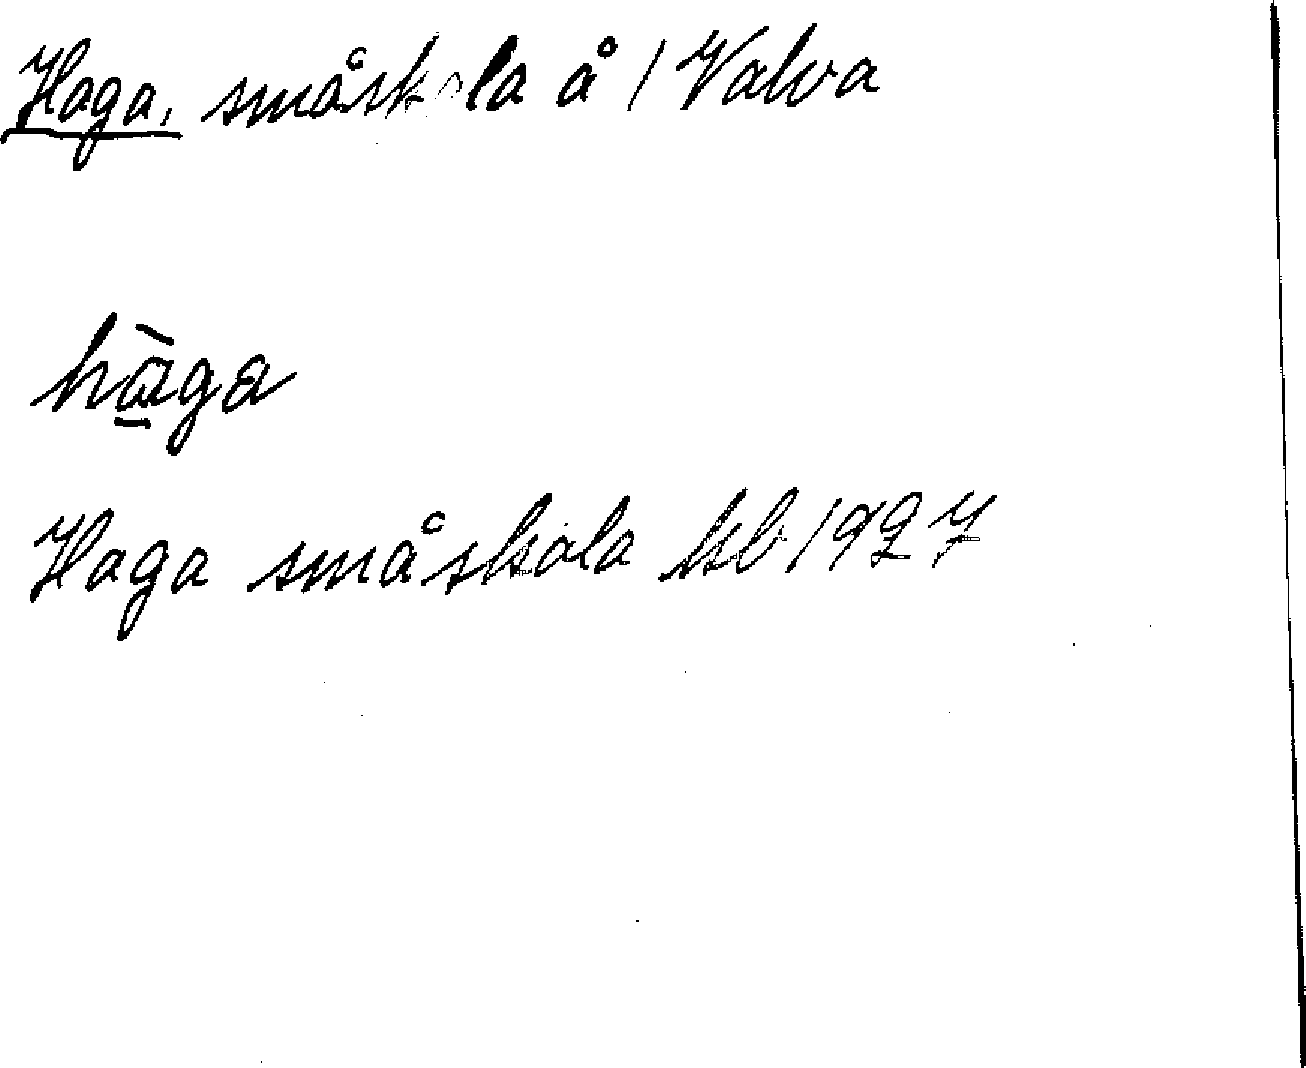 Haga, småskola å 1 Valva
hà̱ga
Haga småskola kb 1927